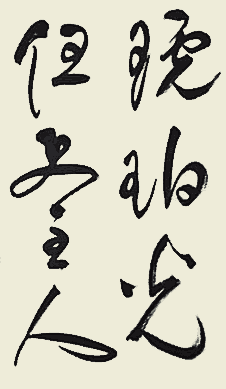 琥珀光
但使主人